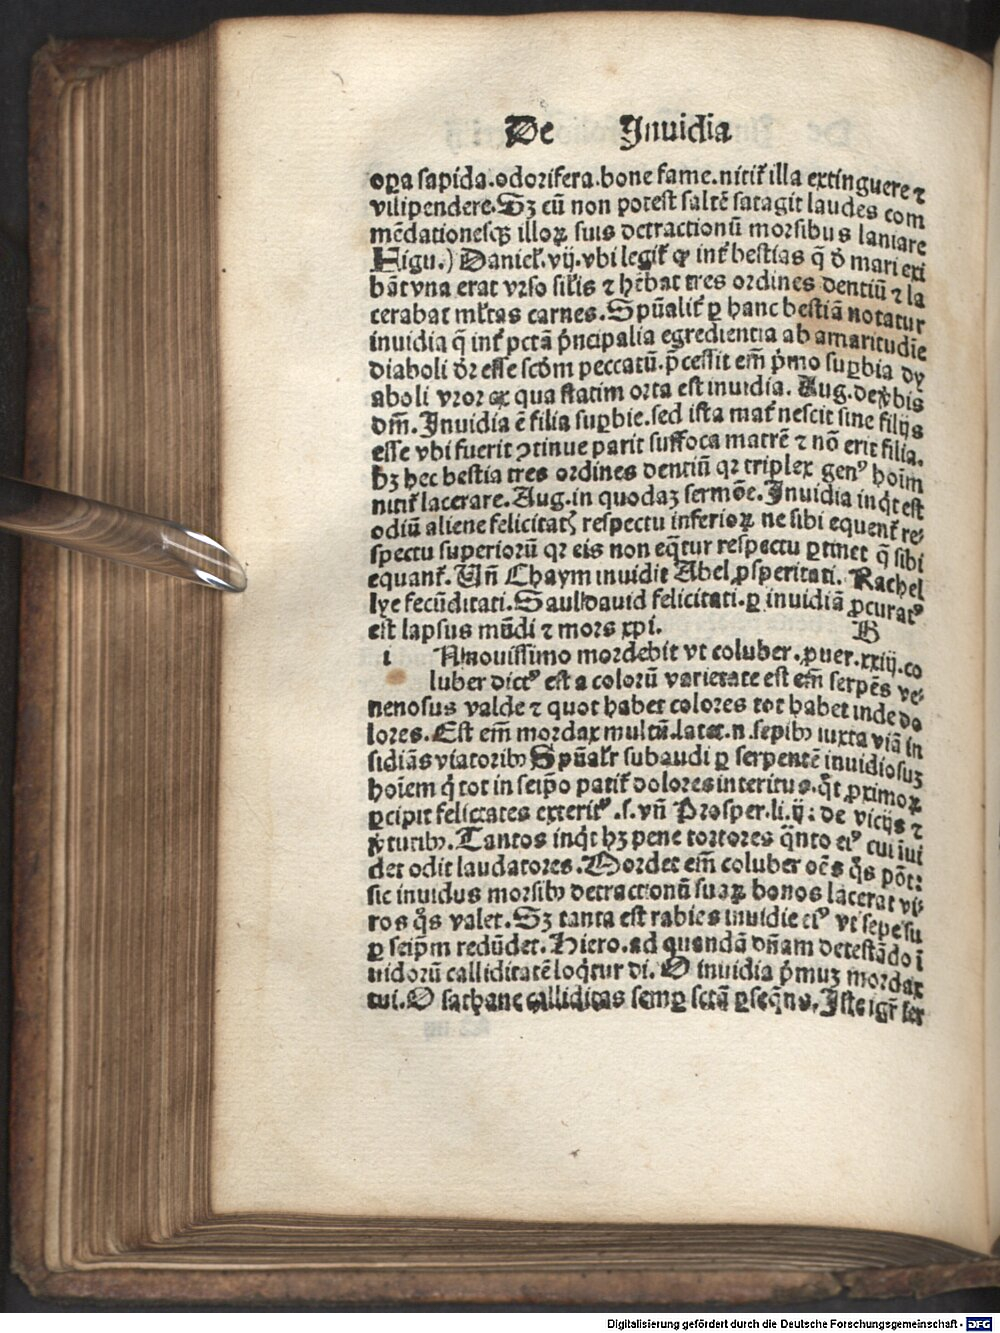 De Inuidia
oꝑa sapida.odorifera.bone fame.nitit̃ illa extinguere ⁊
vilipendere.Sꝫ cũ non potest saltẽ satagit laudes com
mẽdationesqꝫ illoꝝ suis detractionũ morsibus laniare
Figu.) Daniel̃.vij.vbi legit̃ ꝙ int̃ bestias q̃ d̃ mari exi
bãt vna erat vrso sil̃is ⁊ hẽbat tres ordines dentiũ ⁊ la
cerabat ml̃tas carnes.Spũalit̃ ꝑ hanc bestiã notatur
inuidia q̃ int̃ pctã p̃ncipalia egredientia ab amaritudĩe
diaboli dr̃ esse scd̃m peccatũ.p̃cessit em̃ p̃mo suꝑbia dy
aboli vxor ex qua statim orta est inuidia. Aug.de ṽbis
dm̃.Inuidia ẽ filia suꝑbie.sed ista mat̃ nescit sine filijs
esse vbi fuerit ꝯtinue parit suffoca matrẽ ⁊ nõ erit filia.
hꝫ hec bestia tres ordines dentiũ qꝛ triplex genꝰ hoĩm
nitit̃ lacerare.Aug.in quodaꝫ sermõe.Inuidia inq̃t est
odiũ aliene felicitatꝭ respectu inferioꝝ ne sibi equent̃ re⸗
spectu superiorũ qꝛ eis non eq̃tur respectu ꝑtinet q̃ sibi
equant̃.Uñ Chaym inuidit Abel ꝓsperitati. Rachel
lye fecũditati.Saul dauid felicitati.ꝑ inuidiã ꝓcuratꝰ
est lapsus mũdi ⁊ mors xp̃i. B
i Nnouissimo mordebit vt coluber.ꝓuer.xxiij.co
luber dictꝰ est a colorũ varietate est em̃ serpẽs ve⸗
nenosus valde ⁊ quot habet colores tot habet inde do
lores.Est em̃ mordax multũ.latet.n.sepibꝫ iuxta viã in
sidiãs viatoribꝫ Spũalr̃ subaudi ꝑ serpentẽ inuidiosuꝫ
hoĩem q̃ tot in seip̃o patit̃ dolores interitus.q̃t ꝓximoꝝ
ꝑcipit felicitates exteriꝰ.s.vñ Prosper.li.ij: de vicijs ⁊
ṽtutibꝫ.Tantos inq̃t hꝫ pene tortores q̃nto eiꝰ cui ĩui
det odit laudatores.Mordet em̃ coluber oẽs q̃s põt:
sic inuidus morsibꝫ detractionũ suaꝝ bonos lacerat vi⸗
ros q̃s valet.Sꝫ tanta est rabies inuidie eiꝰ vt sepe su
ꝑ seip̃m redũdet.Hiero.ad quandã dñam detestãdo ĩ
uidorũ calliditatẽ loq̃tur di. O inuidia p̃muꝫ mordax
tui.O sathane calliditas semꝑ sctã ꝑseq̃ns.Iste igr̃ ser
Digitalisierung gefördert durch die Deutsche Forschungsgemeinschaft - DFG